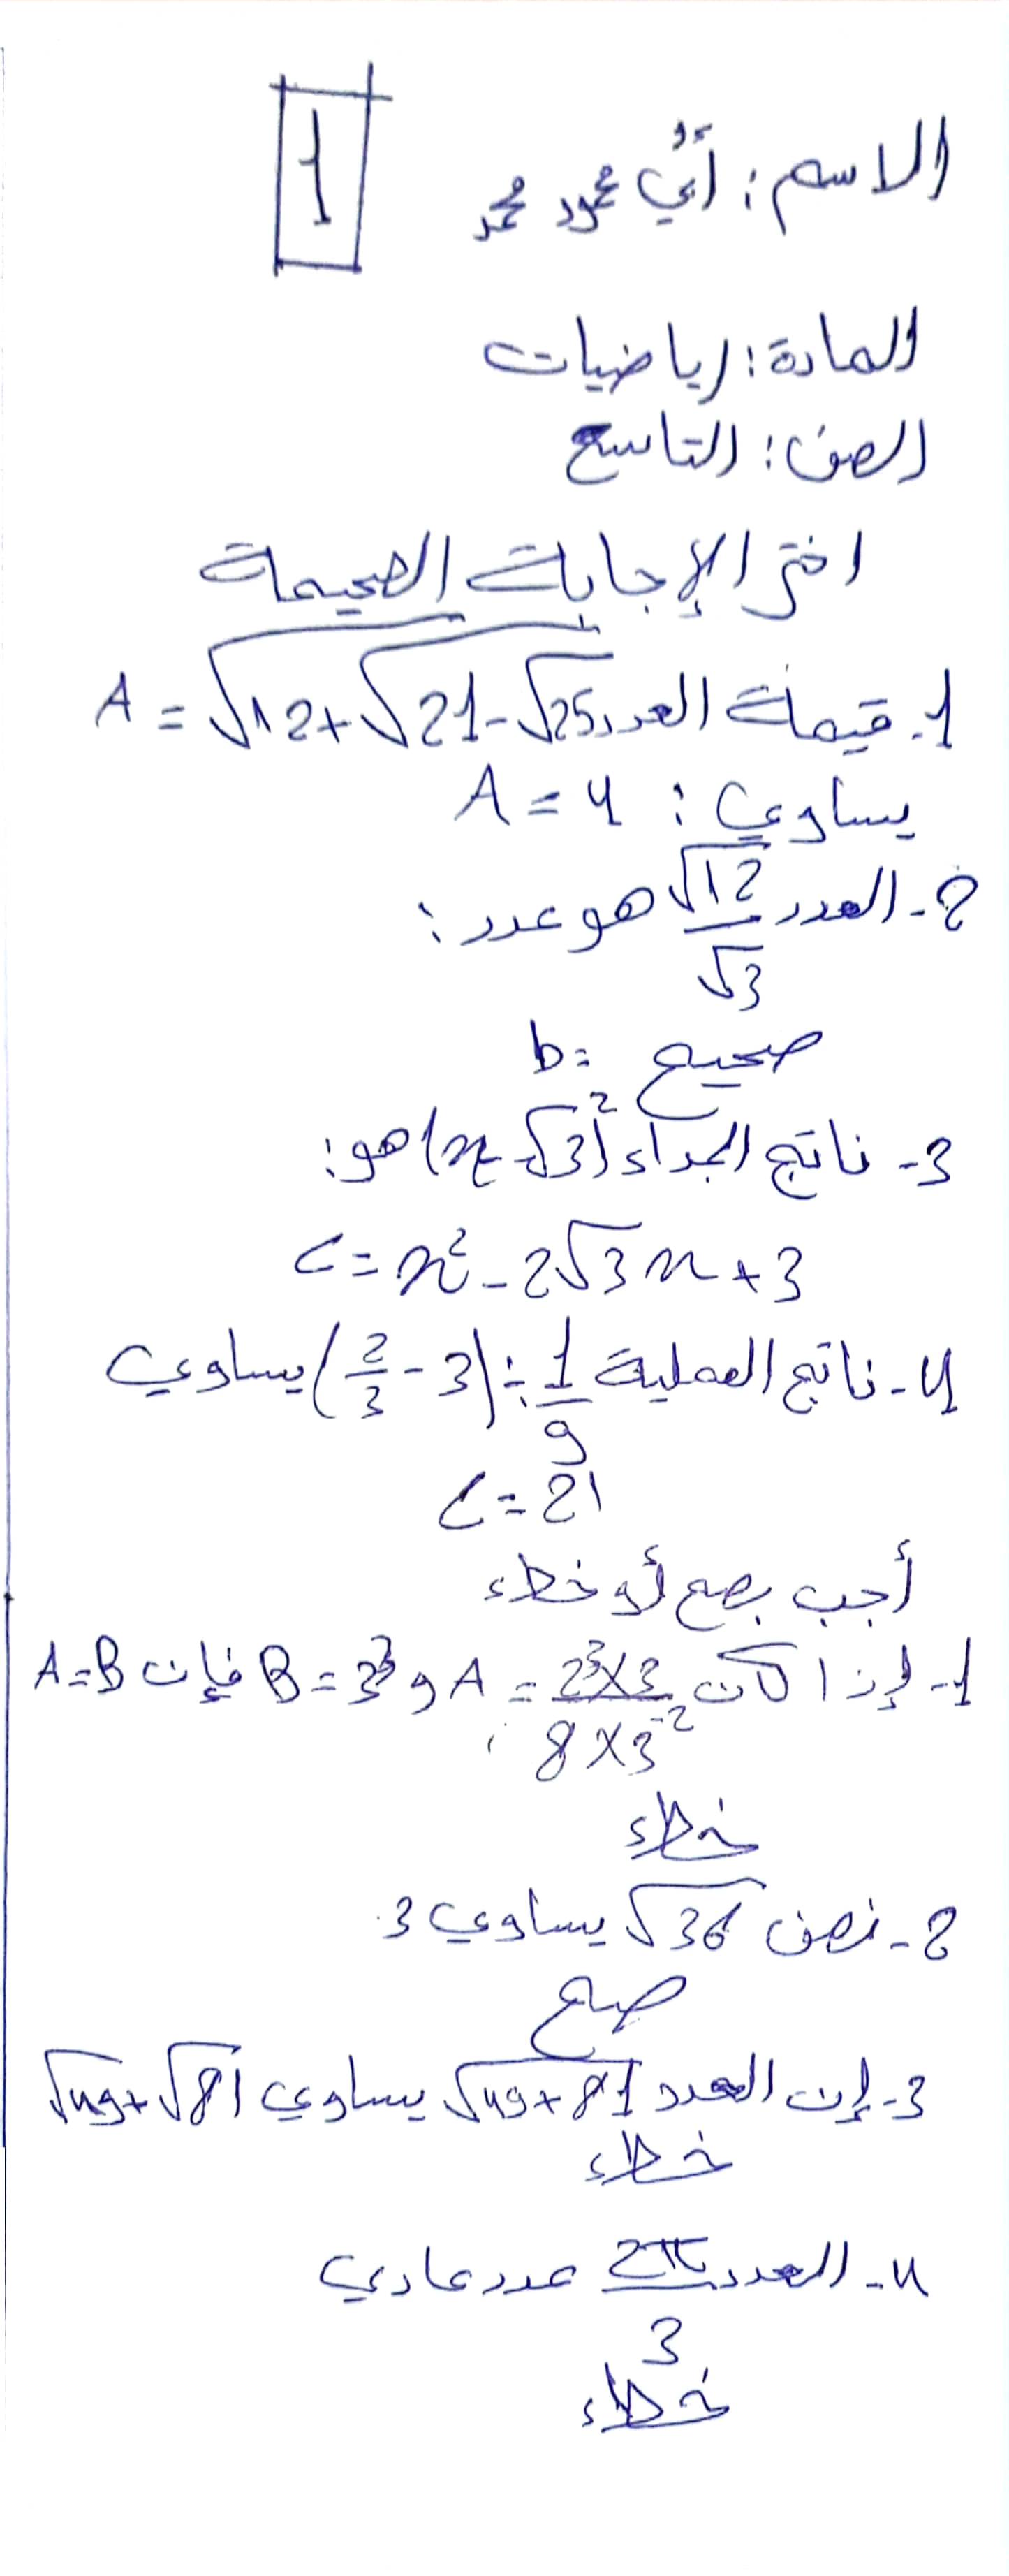 1
الاسم: أُبَي محمود محمد
المادة: رياضيات
الصف: التاسع
اختر الإجابة الصحيحة
1- قيمة العدد A = √(12+√(21-√25))
يساوي: A = 4
2- العدد √12/√3 هو عدد:
b: صحيح
3- ناتج الجداء (x-√3)² هو:
c = x² - 2√3x + 3
4- ناتج العملية (3 - 2/3) ÷ 1/9 يساوي
c = 21
أجب بصح أو خطاء
1- إذا كان A = (2³×3)/(8×3⁻²) و B = 3³ فإن A=B
خطاء
2- نصف √36 يساوي 3.
صح
3- إن العدد √(49+81) يساوي √49+√81
خطاء
4- العدد 2π/3 عدد عادي
خطاء